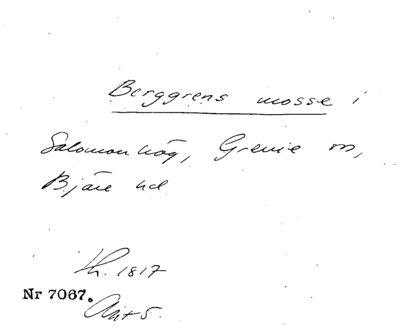 Berggrens mosse i
Salomonhög, Grevie sn,
Bjäre hd
th. 1817
Nr 7067.